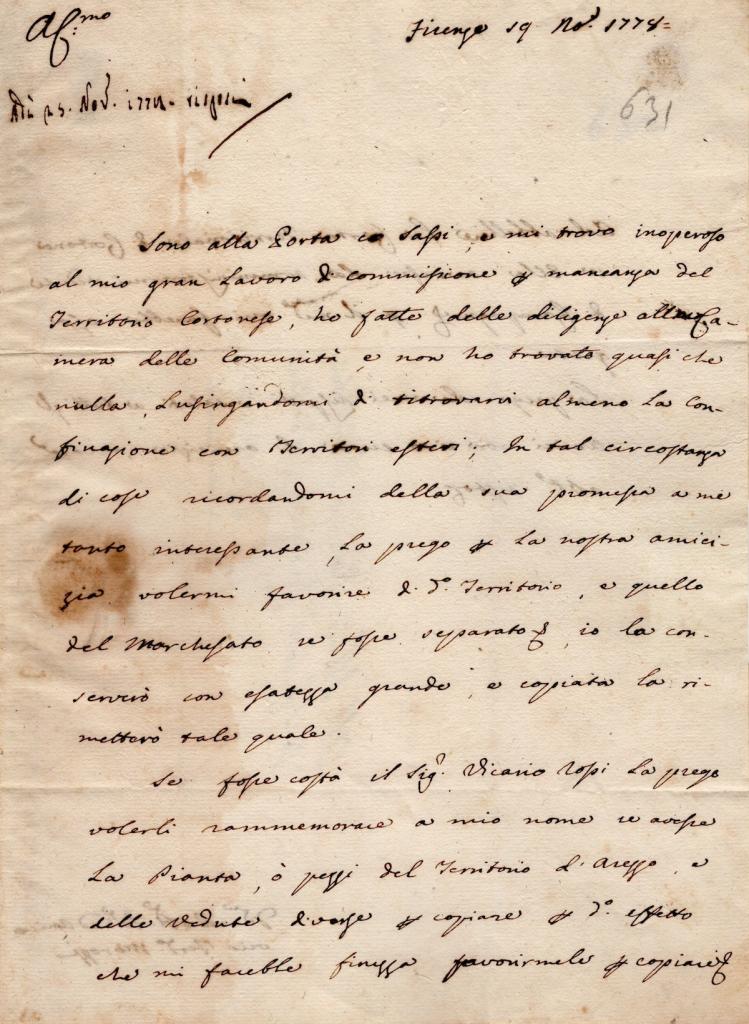 A.C.mo
Firenze 19 Nov. 1778=
Adì 23. Nov. 1778. risposi
631
Sono alla Porta co Sassi, e mi trovo inoperoso
al mio gran Lavoro di commissione p mancanza del
Territorio Cortonese, ho fatte delle diligenze alla Ca-
mera delle Comunità e non ho trovato quasi che
nulla, Lusingandomi di ritrovarvi almeno La Con-
finazione con Territori esteri; In tal circostanza
di cose ricordandomi della sua promessa a me
tanto interessante, La prego p La nostra amici-
zia volermi favorire di d.o Territorio, e quello
del Marchesato se fosse separato, io la con-
serverò con esatezza grande, e copiata la ri-
metterò tale quale.
Se fosse costà il Sig.r Vicario Rossi La prego
volerli rammemorare a mio nome se avesse
La Pianta, ò pezzi del Territorio d'Arezzo, e
delle Vedute diverse p copiare p d.o effetto
che mi farebbe finezza favorirmele p copiare